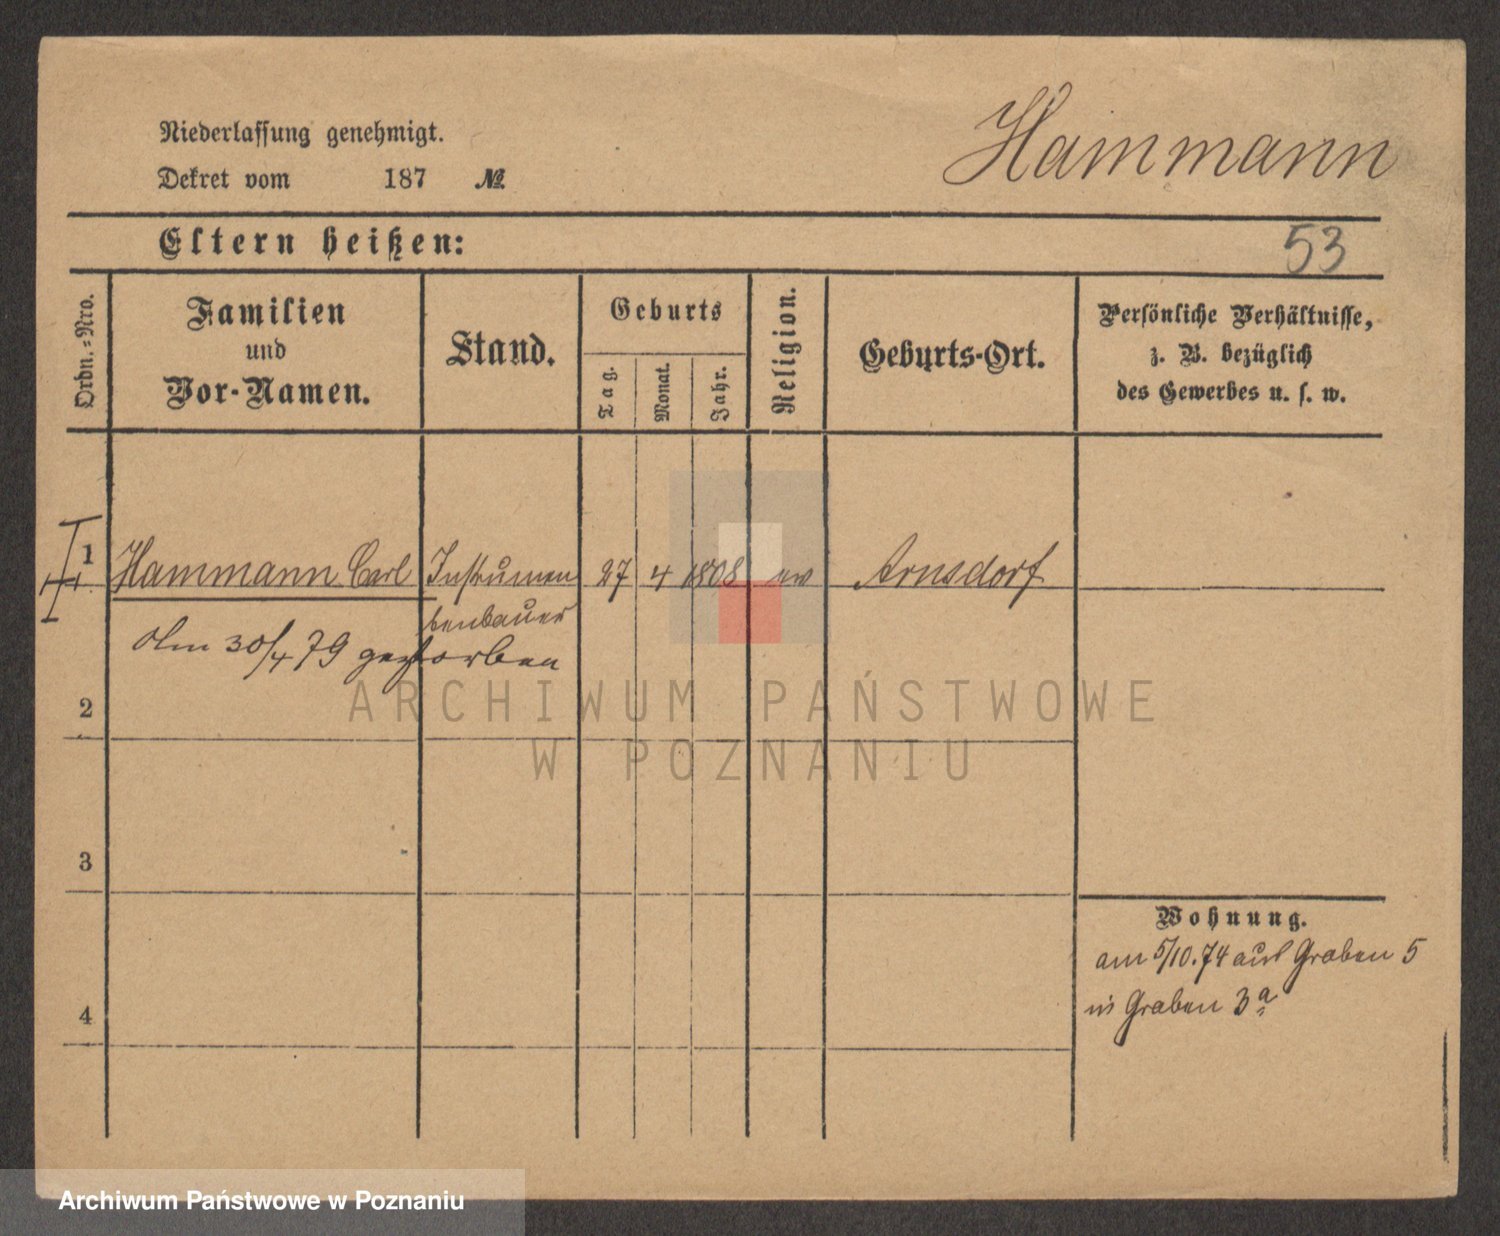 Hammann
Niederlassung genehmigt.
Dekret vom 187 №
Eltern heißen:
53
Ordn.-Nro.
Familien
und
Vor-Namen.
Stand.
Geburts
Tag.
Monat.
Jahr.
Religion.
Geburts-Ort.
Persönliche Verhältnisse,
z. B. bezüglich
des Gewerbes u. s. w.
1 Hammann Carl Instrumen 27 4 1808 ev Arnsdorf
tenbauer
Am 30/4 79 gestorben
2
3
4
Wohnung.
am 5/10.74 aus Graben 5
in Graben 3a
ARCHIWUM PAŃSTWOWE
W POZNANIU
Archiwum Państwowe w Poznaniu